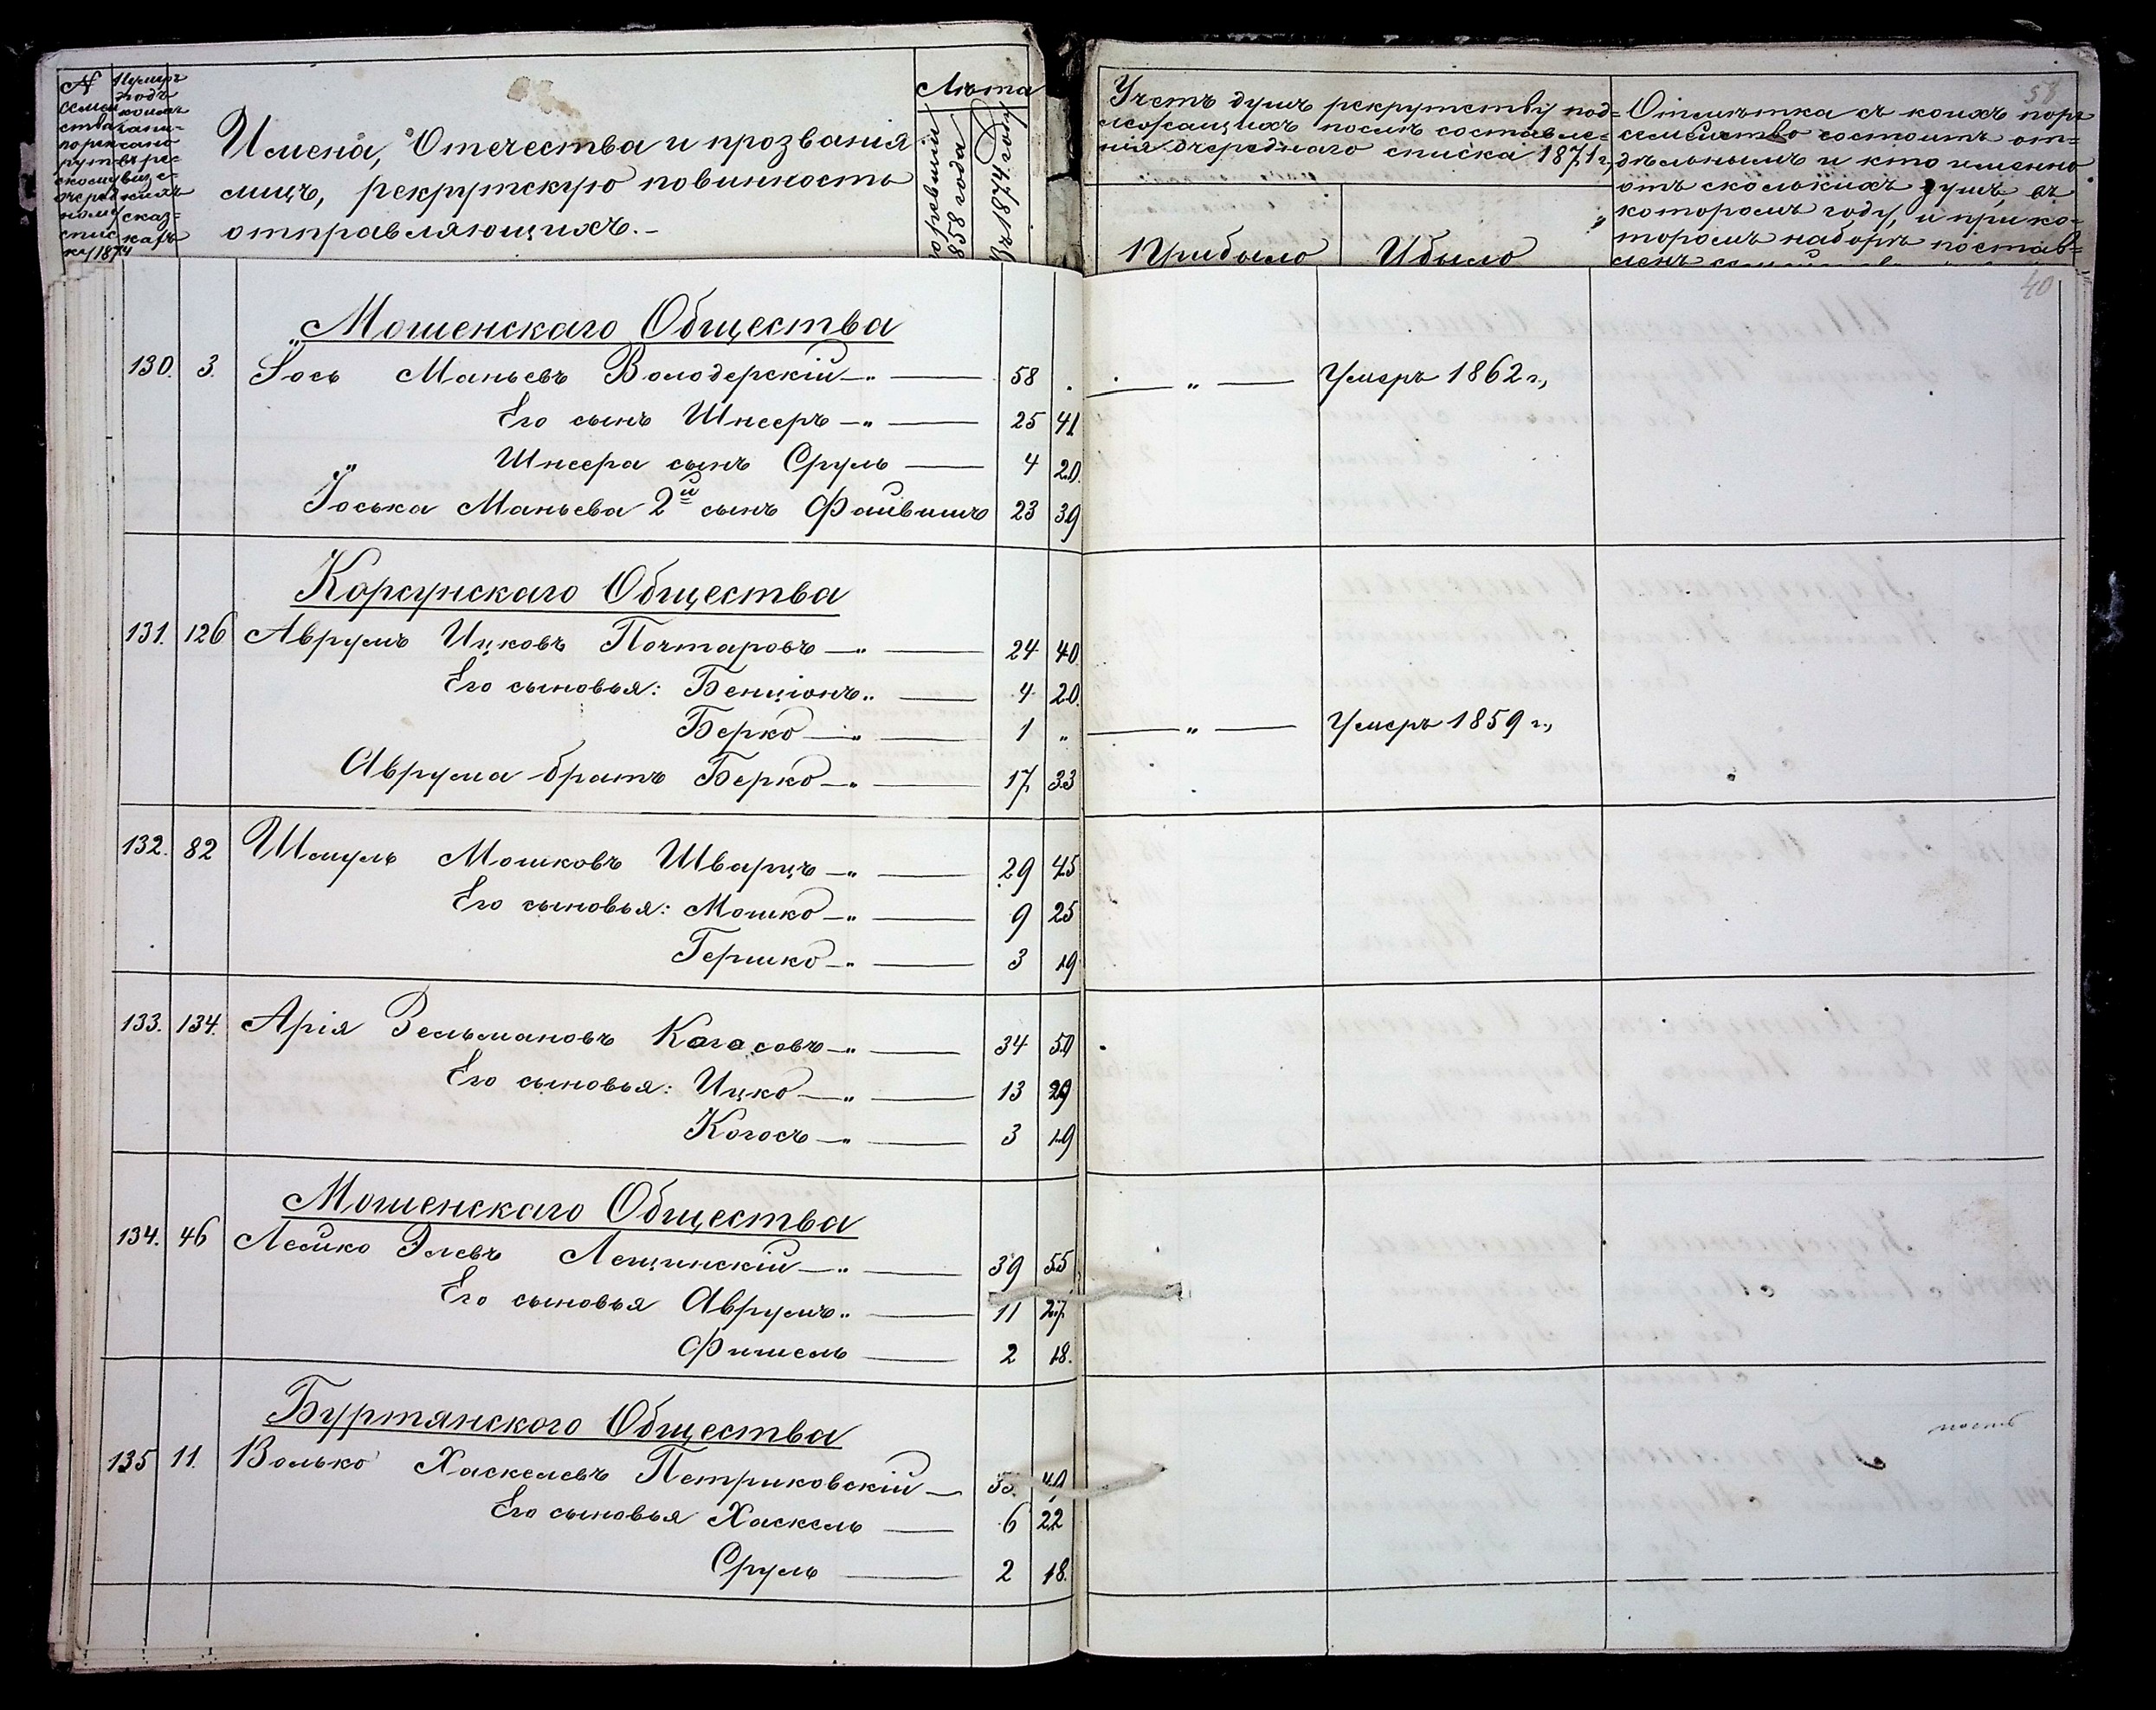 № семей
ства
по рек
рут
скому
очеред
ному
спис
ку 1874
Нумеръ
подъ
коимъ
запи-
сано
въ ре-
визс-
кихъ
сказ-
кахъ
Имена, Отечества и прозванія
лицъ, рекрутскую повинность
отправляющихъ.-
Лѣта
по ревизіи
1858 года
Въ 1874 году
Учетъ душъ рекрутству под-
лежащихъ послѣ составле-
нія очереднаго списка 1871 г.,
Прибыло
Убыло
58
Отмѣтка съ коихъ поръ
семейство состоитъ от-
дѣльнымъ и кто именно
отъ сколькихъ душъ, въ
которомъ году, и при ко-
торомъ наборѣ постав-
ленъ
40
Мошенскаго Общества
130. 3. Іось Маньевъ Володерскій —„— 58 . —„— Умеръ 1862 г.,
Его сынъ Шнееръ —„— 25 41
Шнеера сынъ Сруль — 4 20.
Іоська Маньева 2й сынъ Файвишъ 23 39
Корсунскаго Общества
131. 126 Аврумъ Ицковъ Почтаровъ —„— 24 40
Его сыновья: Бенціонъ „— 4 20.
Берко —„— 1 „ —„— Умеръ 1859 г.,
Аврума братъ Берко —„— 17 33
132. 82 Шмуль Мошковъ Шварцъ —„— 29 45
Его сыновья: Мошко —„— 9 25
Гершко —„— 3 19
133. 134. Арія Зельмановъ Когосовъ —„— 34 50
Его сыновья: Ицко —„— 13 29
Когосъ —„— 3 19
Мошенскаго Общества
134. 46 Лейко Элевъ Лещинскій —„— 39 55
Его сыновья Аврумъ „— 11 27
Фишель — 2 18.
Буртянского Общества
135 11. Волько Хаскелевъ Петриковскій — 33. 49
Его сыновья Хаскель — 6 22
Сруль — 2 18.